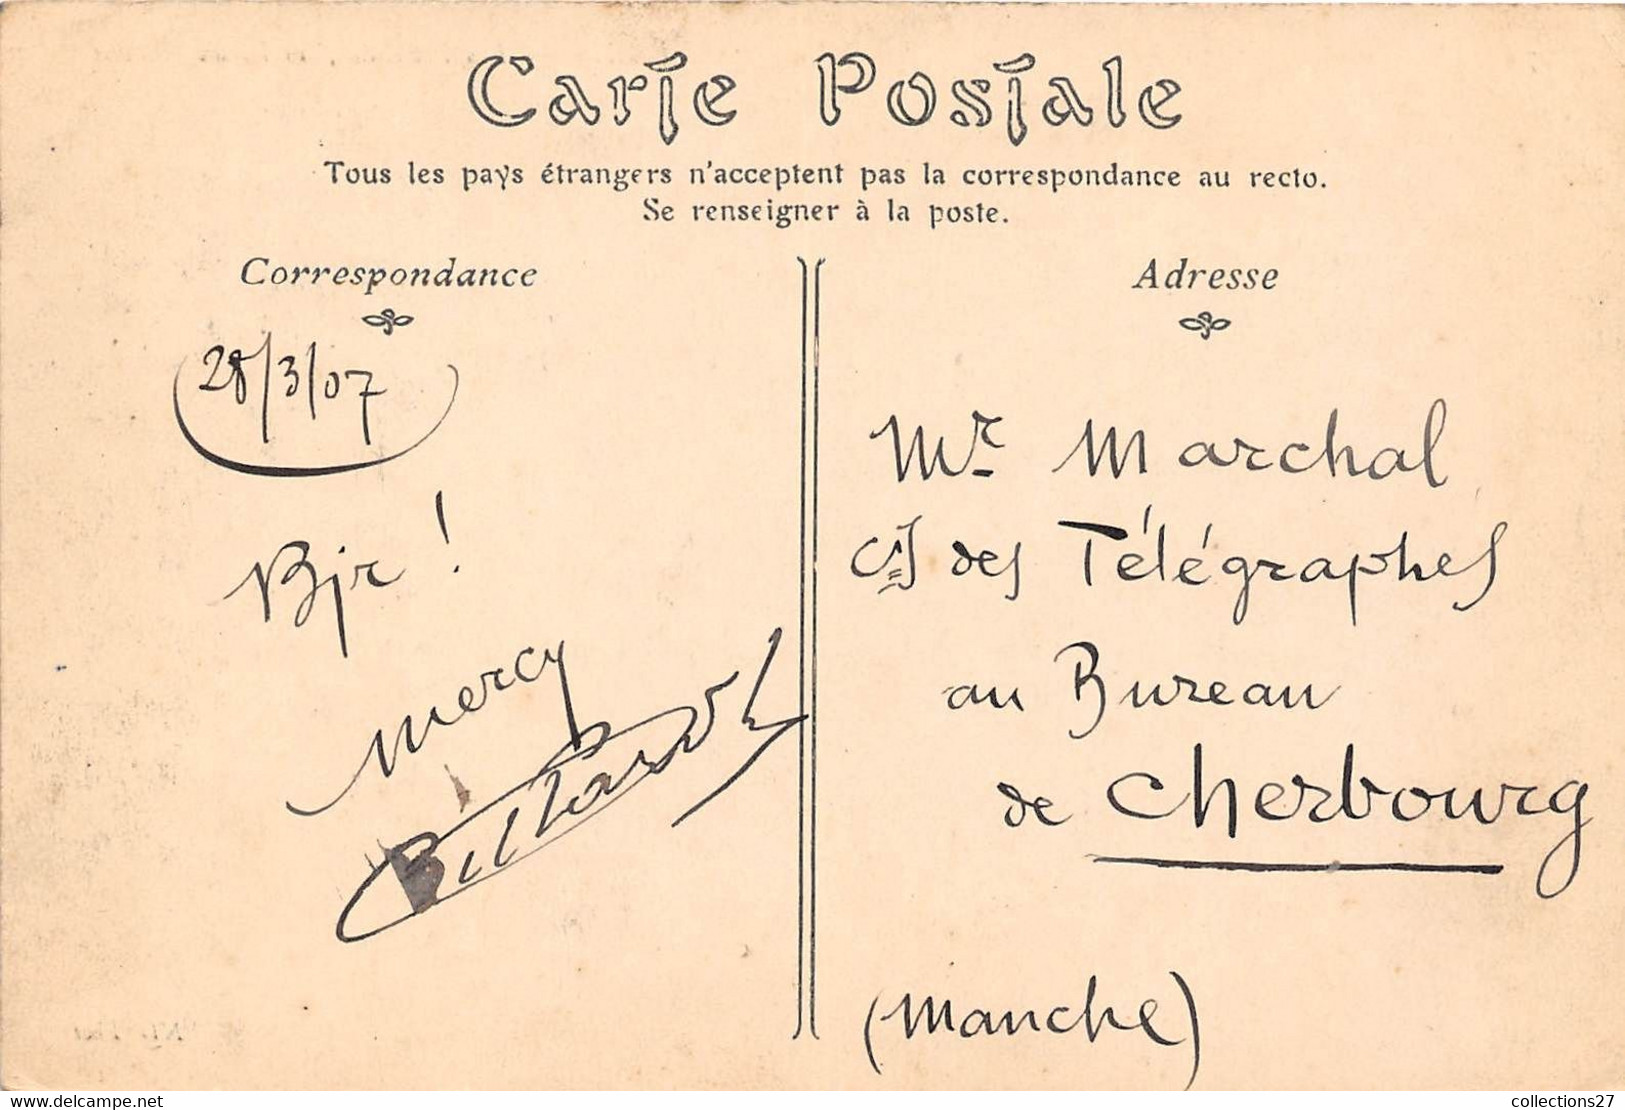 Carte Postale
Tous les pays étrangers n'acceptent pas la correspondance au recto.
Se renseigner à la poste.
Correspondance
28/3/07
Bjr !
mercy
Adresse
Mr Marchal
des Télégraphes
au Bureau
de Cherbourg
(Manche)
www.delcampe.net
collections27